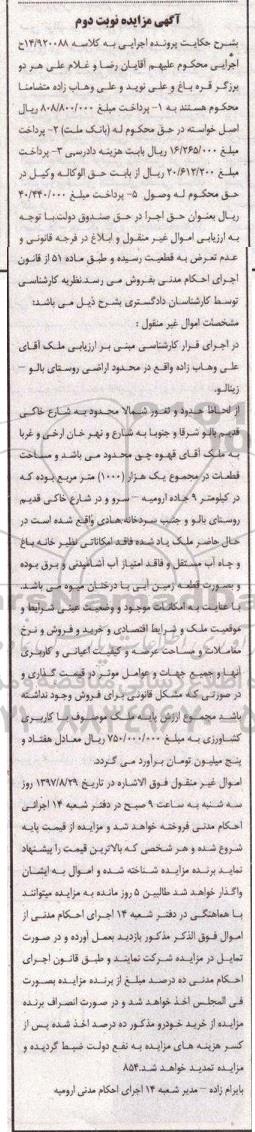 آگهی مزایده نوبت دوم
بشرح حکایت پرونده اجرایی به کلاسه ۱۴/۹۲۰۰۸۸ح
اجرایی محکوم علیهم آقایان رضا و غلام علی هر دو
برزگر قره باغ و علی نوید و علی وهاب زاده متضامنا
محکوم هستند به ۱- پرداخت مبلغ ۸۰۸/۸۰۰/۰۰۰ ریال
اصل خواسته در حق محکوم له (بانک ملت) ۲- پرداخت
مبلغ ۱۶/۲۶۵/۰۰۰ ریال بابت هزینه دادرسی ۳- پرداخت
مبلغ ۲۰/۶۱۲/۲۰۰ ریال از بابت حق الوکاله وکیل در
حق محکوم له وصول ۵- پرداخت مبلغ ۴۰/۴۴۰/۰۰۰
ریال بعنوان حق اجرا در حق صندوق دولت.با توجه
به ارزیابی اموال غیر منقول و ابلاغ در فرجه قانونی و
عدم تعرض به قطعیت رسیده و طبق ماده ۵۱ از قانون
اجرای احکام مدنی بفروش می رسد.نظریه کارشناسی
توسط کارشناسان دادگستری بشرح ذیل می باشد:
مشخصات اموال غیر منقول :
در اجرای قرار کارشناسی مبنی بر ارزیابی ملک آقای
علی وهاب زاده واقع در محدود اراضی روستای بالو –
زینالو.
از لحاظ حدود و ثغور شمالا محدود به شارع خاکی
قدیم بالو شرقا و جنوبا به شارع و نهر خان ارخی و غربا
به ملک آقای قهوه چی محدود می باشد و مساحت
قطعات در مجموع یک هزار (۱۰۰۰) متر مربع بوده که
در کیلومتر ۹ جاده ارومیه – سرو و در شارع خاکی قدیم
روستای بالو و جنب سردخانه هادی واقع شده است در
حال حاضر ملک یاد شده فاقد امکاناتی نظیر خانه باغ
و چاه آب مستقل و فاقد امتیاز آب آشامیدنی و برق بوده
و بصورت قطعه زمین آبی با درختان میوه می باشد.
با عنایت به امکانات موجود و وضعیت عینی شرایط و
موقعیت ملک و شرایط اقتصادی و خرید و فروش و نرخ
معاملات و مساحت عرصه و کیفیت اعیانی و کاربری
آنها و جمیع جهات و عوامل موثر در قیمت گذاری و
در صورتی که مشکل قانونی برای فروش وجود نداشته
باشد مجموع ارزش پایه ملک موصوف با کاربری
کشاورزی به مبلغ ۷۵۰/۰۰۰/۰۰۰ ریال معادل هفتاد و
پنج میلیون تومان برآورد می گردد.
اموال غیر منقول فوق الاشاره در تاریخ ۱۳۹۷/۸/۲۹ روز
سه شنبه به ساعت ۹ صبح در دفتر شعبه ۱۴ اجرائی
احکام مدنی فروخته خواهد شد و مزایده از قیمت پایه
شروع شده و هر شخصی که بالاترین قیمت را پیشنهاد
نماید برنده مزایده شناخته شده و اموال به ایشان
واگذار خواهد شد طالبین ۵ روز مانده به مزایده میتوانند
با هماهنگی در دفتر شعبه ۱۴ اجرای احکام مدنی از
اموال فوق الذکر مذکور بازدید بعمل آورده و در صورت
تمایل در مزایده شرکت نمایند و طبق قانون اجرای
احکام مدنی ده درصد مبلغ از برنده مزایده بصورت
فی المجلس اخذ خواهد شد و در صورت انصراف برنده
مزایده از خرید خودرو مذکور ده درصد اخذ شده پس از
کسر هزینه های مزایده به نفع دولت ضبط گردیده و
مزایده تمدید خواهد شد.۸۵۴
بایرام زاده – مدیر شعبه ۱۴ اجرای احکام مدنی ارومیه